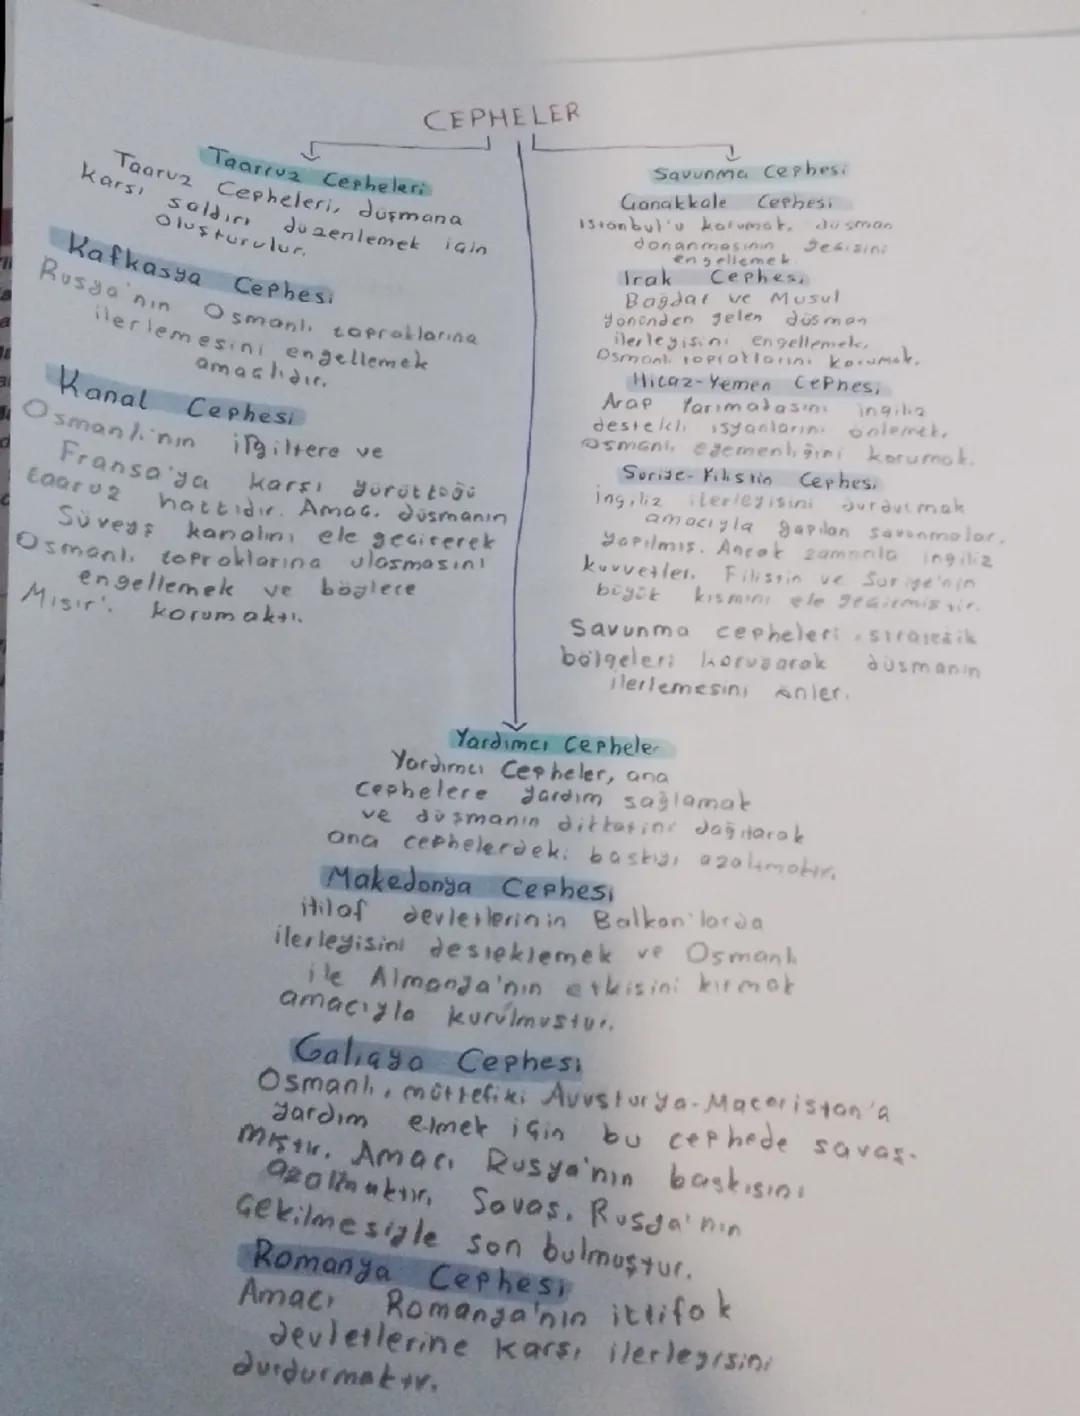 CEPHELER
Taarruz Cepheleri
Taaruz Cepheleri, düşmana
karşı saldırı düzenlemek için
oluşturulur.
Kafkasya Cephesi
Rusya'nın Osmanlı topraklarına
ilerlemesini engellemek
amaçlıdır.
Kanal Cephesi
Osmanlı'nın İngiltere ve
Fransa'ya karşı yürüttüğü
taaruz hattıdır. Amaç, düşmanın
Süveyş kanalını ele geçirerek
Osmanlı topraklarına ulaşmasını
engellemek ve böylece
Mısır'ı korumaktı.
Savunma Cephesi
Çanakkale Cephesi
İstanbul'u korumak, düşman
donanmasının geçişini
engellemek
Irak Cephesi
Bağdat ve Musul
yönünden gelen düşman
ilerleyişini engellemek,
Osmanlı topraklarını korumak.
Hicaz-Yemen Cephesi
Arap Yarımadasını ingiliz
destekli isyanlarını önlemek,
Osmanlı egemenliğini korumak.
Suriye-Filistin Cephesi
İngiliz ilerleyişini durdurmak
amacıyla yapılan savunmalar.
yapılmış. Ancak zamanla ingiliz
kuvvetleri Filistin ve Suriye'nin
büyük kısmını ele geçirmiştir.
Savunma cepheleri, stratejik
bölgeleri koruyarak düşmanın
ilerlemesini önler.
Yardımcı Cepheler
Yardımcı Cepheler, ana
Cephelere yardım sağlamak
ve düşmanın dikkatini dağıtarak
ana cephelerdeki baskıyı azaltmaktır.
Makedonya Cephesi
itilaf devletlerinin Balkan'larda
ilerleyişini desteklemek ve Osmanlı
ile Almanya'nın etkisini kırmak
amacıyla kurulmuştur.
Galiçya Cephesi
Osmanlı, müttefiki Avusturya-Macaristan'a
yardım etmek için bu cephede savaş-
mıştır. Amacı Rusya'nın baskısını
azaltmaktır. Savaş, Rusya'nın
çekilmesiyle son bulmuştur.
Romanya Cephesi
Amacı Romanya'nın ittifak
devletlerine karşı ilerleyişini
durdurmaktır.